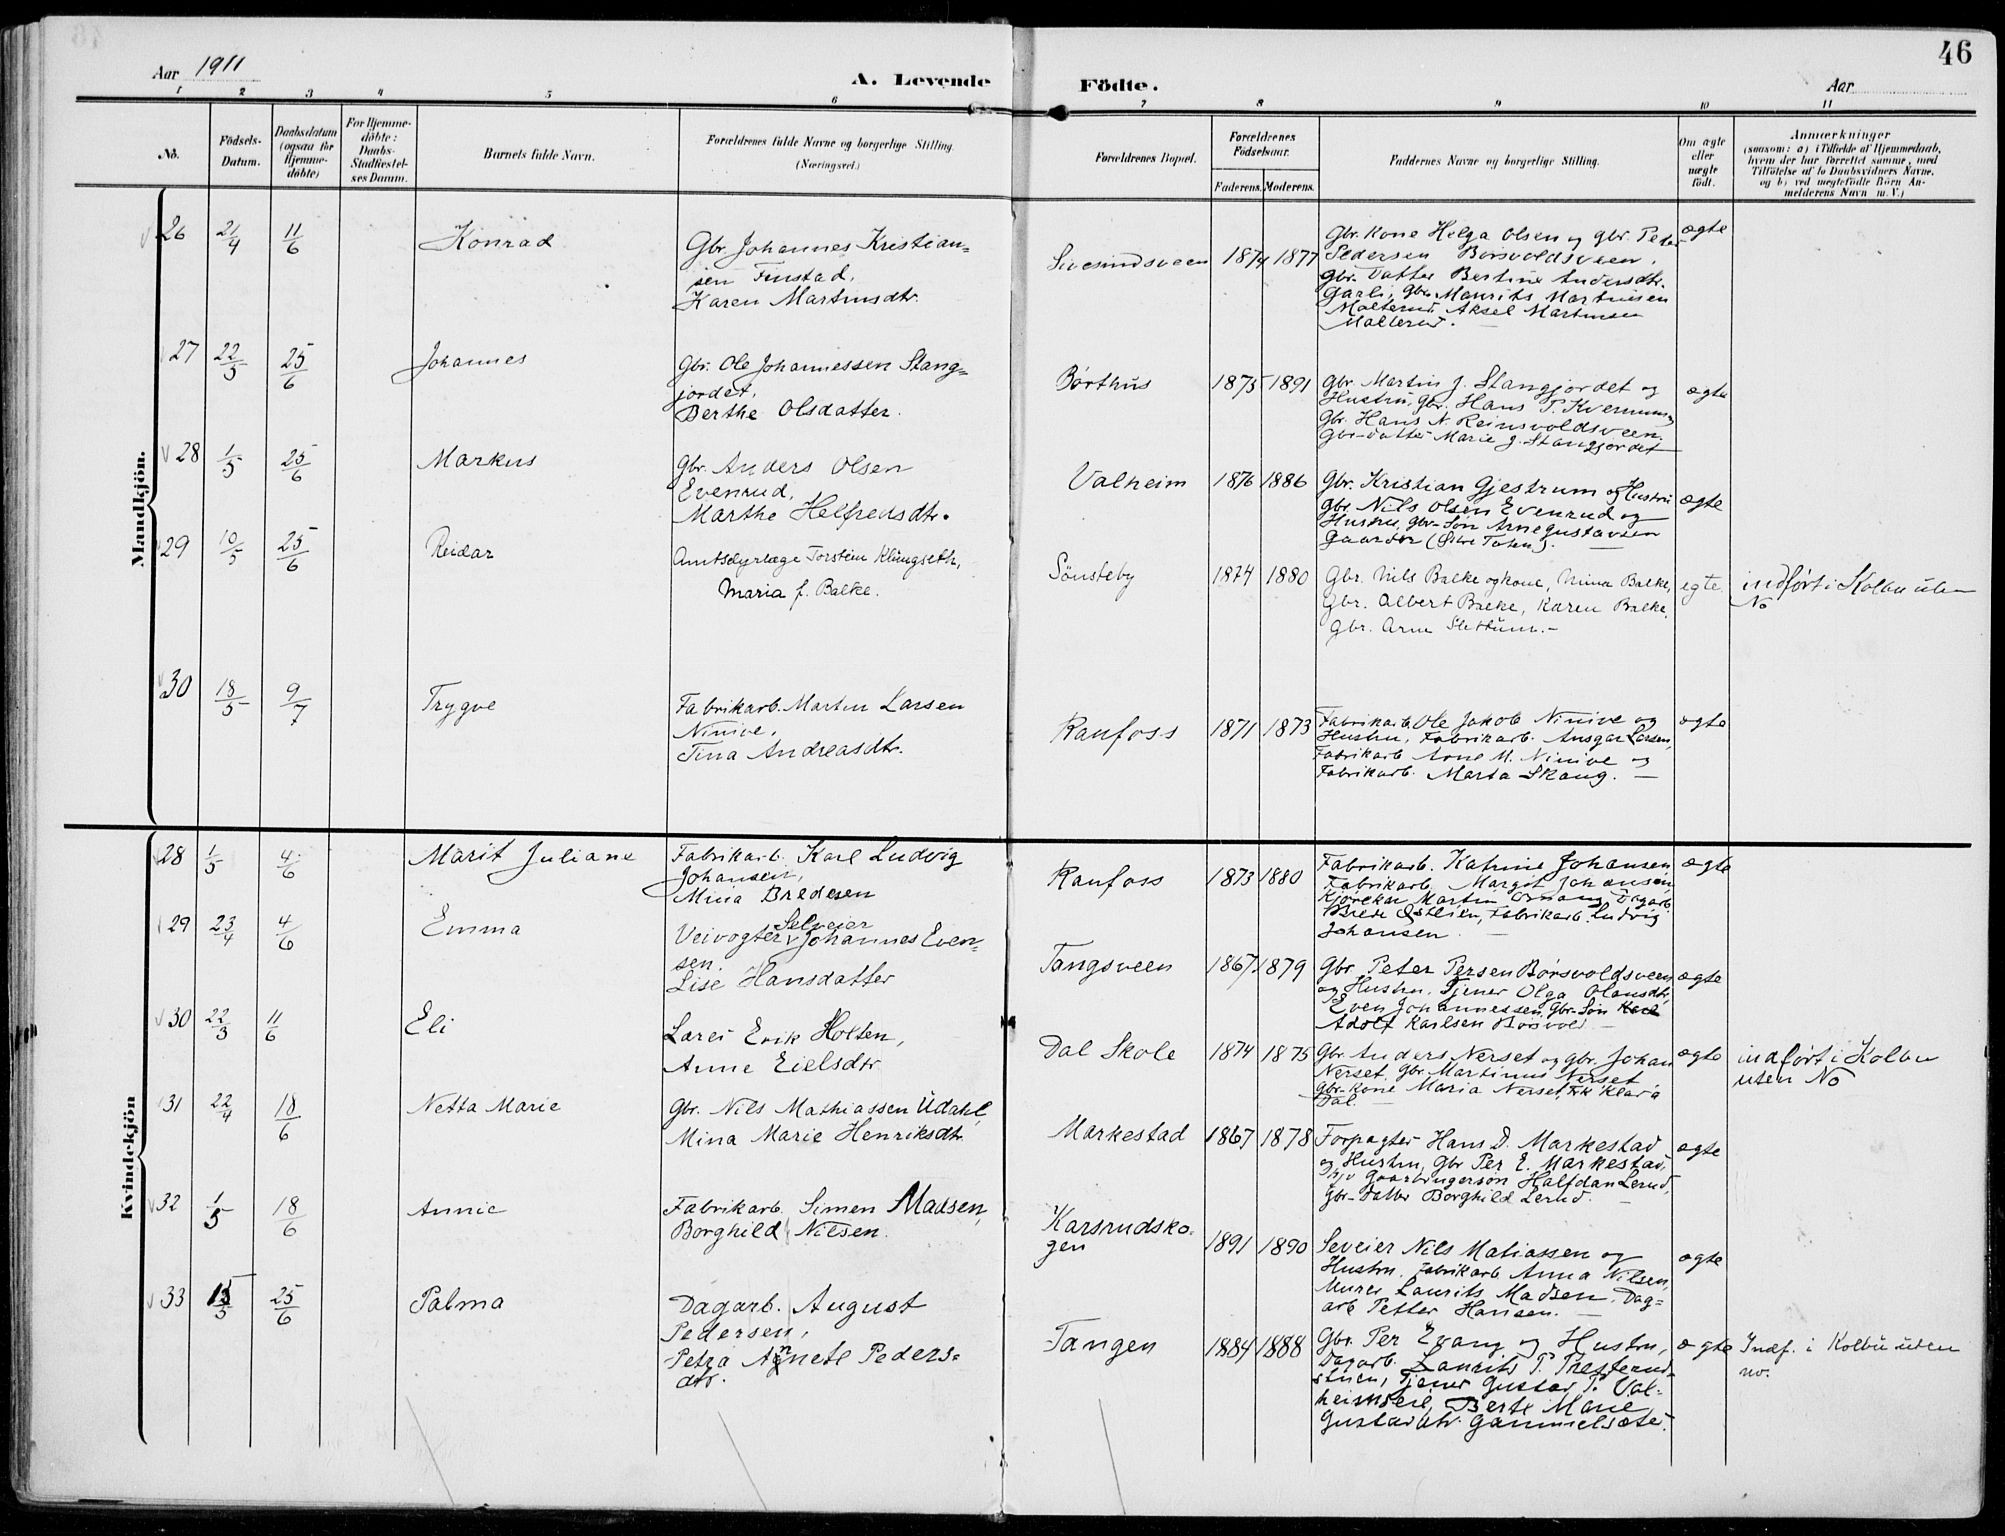 46
Aar 1911
A. Levende Födte.
Aar
1 2 3 4 5 6 7 8 9 10 11
No.
Födsels-
Datum.
Daabsdatum
(ogsaa for
Hjemme-
döbte)
For Hjemme-
döbte:
Daabs-
Stadfæstel-
ses Datum.
Barnets fulde Navn.
Forældrenes fulde Navne og borgerlige Stilling.
(Næringsvei.)
Forældrenes Bopæl.
Forældrenes
Födselsaar.
Faderens. Moderens.
Faddernes Navne og borgerlige Stilling.
Om ægte
eller
uægte
födt.
Anmærkninger
(saasom: a) i Tilfælde af Hjemmedaab,
hvem der har forrettet samme, med
Tilföielse af to Daabsvidners Navne,
og b) ved uægtefödte Börn An-
melderens Navn m. V.)
Mandkjön.
26 21/4 11/6 Konrad
Gbr. Johannes Kristian-
sen Finstad,
Karen Martinsdtr.
Sivesindsveen 1874 1877
Gbr. Kone Helga Olsen og gbr. Peter
Pedersen Børsvoldsveen,
Gbr. Datter Bertine Andersdtr.
Gaarli, Gbr. Maurits Martinsen
Malterud, Aksel Martinsen
Malterud.
ægte
27 22/5 25/6 Johannes
Gbr. Ole Johannessen Stang-
jordet,
Berthe Olsdatter.
Børthus 1875 1891
Gbr. Martin J. Stangjordet og
Hustru, gbr. Hans P. Kvernum
Gbr. Hans N. Reinsvoldsveen.
Gbr-datter Marie J. Stangjordet
ægte
28 1/5 25/6 Markus
Gbr. Anders Olsen
Evenrud,
Marthe Helfredsdtr.
Valheim 1876 1886
Gbr. Kristian Gjestrum og Hustru
Gbr. Nils Olsen Evenrud og
Hustru, gbr-Søn Arne Gustavsen
Gaarder (Østre Toten).
ægte
29 10/5 25/6 Reidar
Amtsdyrlæge Torstein Klungseth,
Maria f. Balke.
Sönsteby 1874 1880
Gbr. Nils Balke og kone, Mina Balke,
Gbr. Albert Balke, Karen Balke,
Gbr. Arne Slettum.
egte
indført i Kolbu uten
No
30 18/5 9/7 Trygve
Fabrikarb. Martin Larsen
Ninive,
Tina Andreasdtr.
Raufoss 1871 1873
Fabrikarb. Ole Jakob Ninive og
Hustru, Fabrikarb. Ansgar Larsen,
Fabrikarb Arne M. Ninive og
Fabrikarb. Marta Skaug.
ægte
Kvindekjön
28 1/5 4/6 Marit Juliane
Fabrikarb. Karl Ludvig
Johansen,
Mina Bredesen
Raufoss 1873 1880
Fabrikarb. Katrine Johansen,
Fabrikarb. Margit Johansen,
Kjørekar Martin Dagarb.
Brede Østlien, Fabrikarb. Ludvig
Johansen
ægte
29 23/4 4/6 Emma
Selveier
Veivogter Johannes Even-
sen.
Lise Hansdatter
Tangsveen 1867 1879
Gbr. Peter Persen Børsvoldsveen
og Hustru, Tjener Olga Olausdtr.
Even Johannessen, Gbr-Søn Karl
Adolf Karlsen Børsvold
ægte
30 22/3 11/6 Eli
Lærer Erik Holten,
Anne Eielsdtr
Dal Skole 1874 1875
Gbr. Anders Nerset og gbr. Johan
Nerset, gbr. Martinus Nerset
Gbr-kone Maria Nerset, Frk Klara
Dal.
ægte
indført i Kolbu
uten No
31 22/4 18/6 Netta Marie
Gbr. Nils Mathiassen Udahl,
Mina Marie Henriksdtr.
Markestad 1867 1878
Forpagter Hans D. Markestad
og Hustru, Gbr Per E. Markestad,
Gaardbrugersøn Halfdan Lerud,
Gbr-Datter Borghild Lerud.
ægte
32 1/5 18/6 Annie
Fabrikarb. Simen Madsen,
Borghild Nilsen.
Karsrudsko-
gen
1891 1890
Seveier Nils Matiassen og
Hustru. Fabrikarb Anna Nilsen,
Murer Laurits Madsen, Dag-
arb Petter Hansen.
ægte
33 15/5 25/6 Palma
Dagarb. August
Pedersen,
Petra Agnete Peders-
dtr.
Tangen 1884 1888
Gbr. Per Evang og Hustru,
Dagarb. Laurits P. Præsterud-
stuen, Tjener Gustav P. Val-
heimseie, Berte Marie
Gustavdtr. Gammelsæter.
ægte
Indf. i Kolbu uten
no.